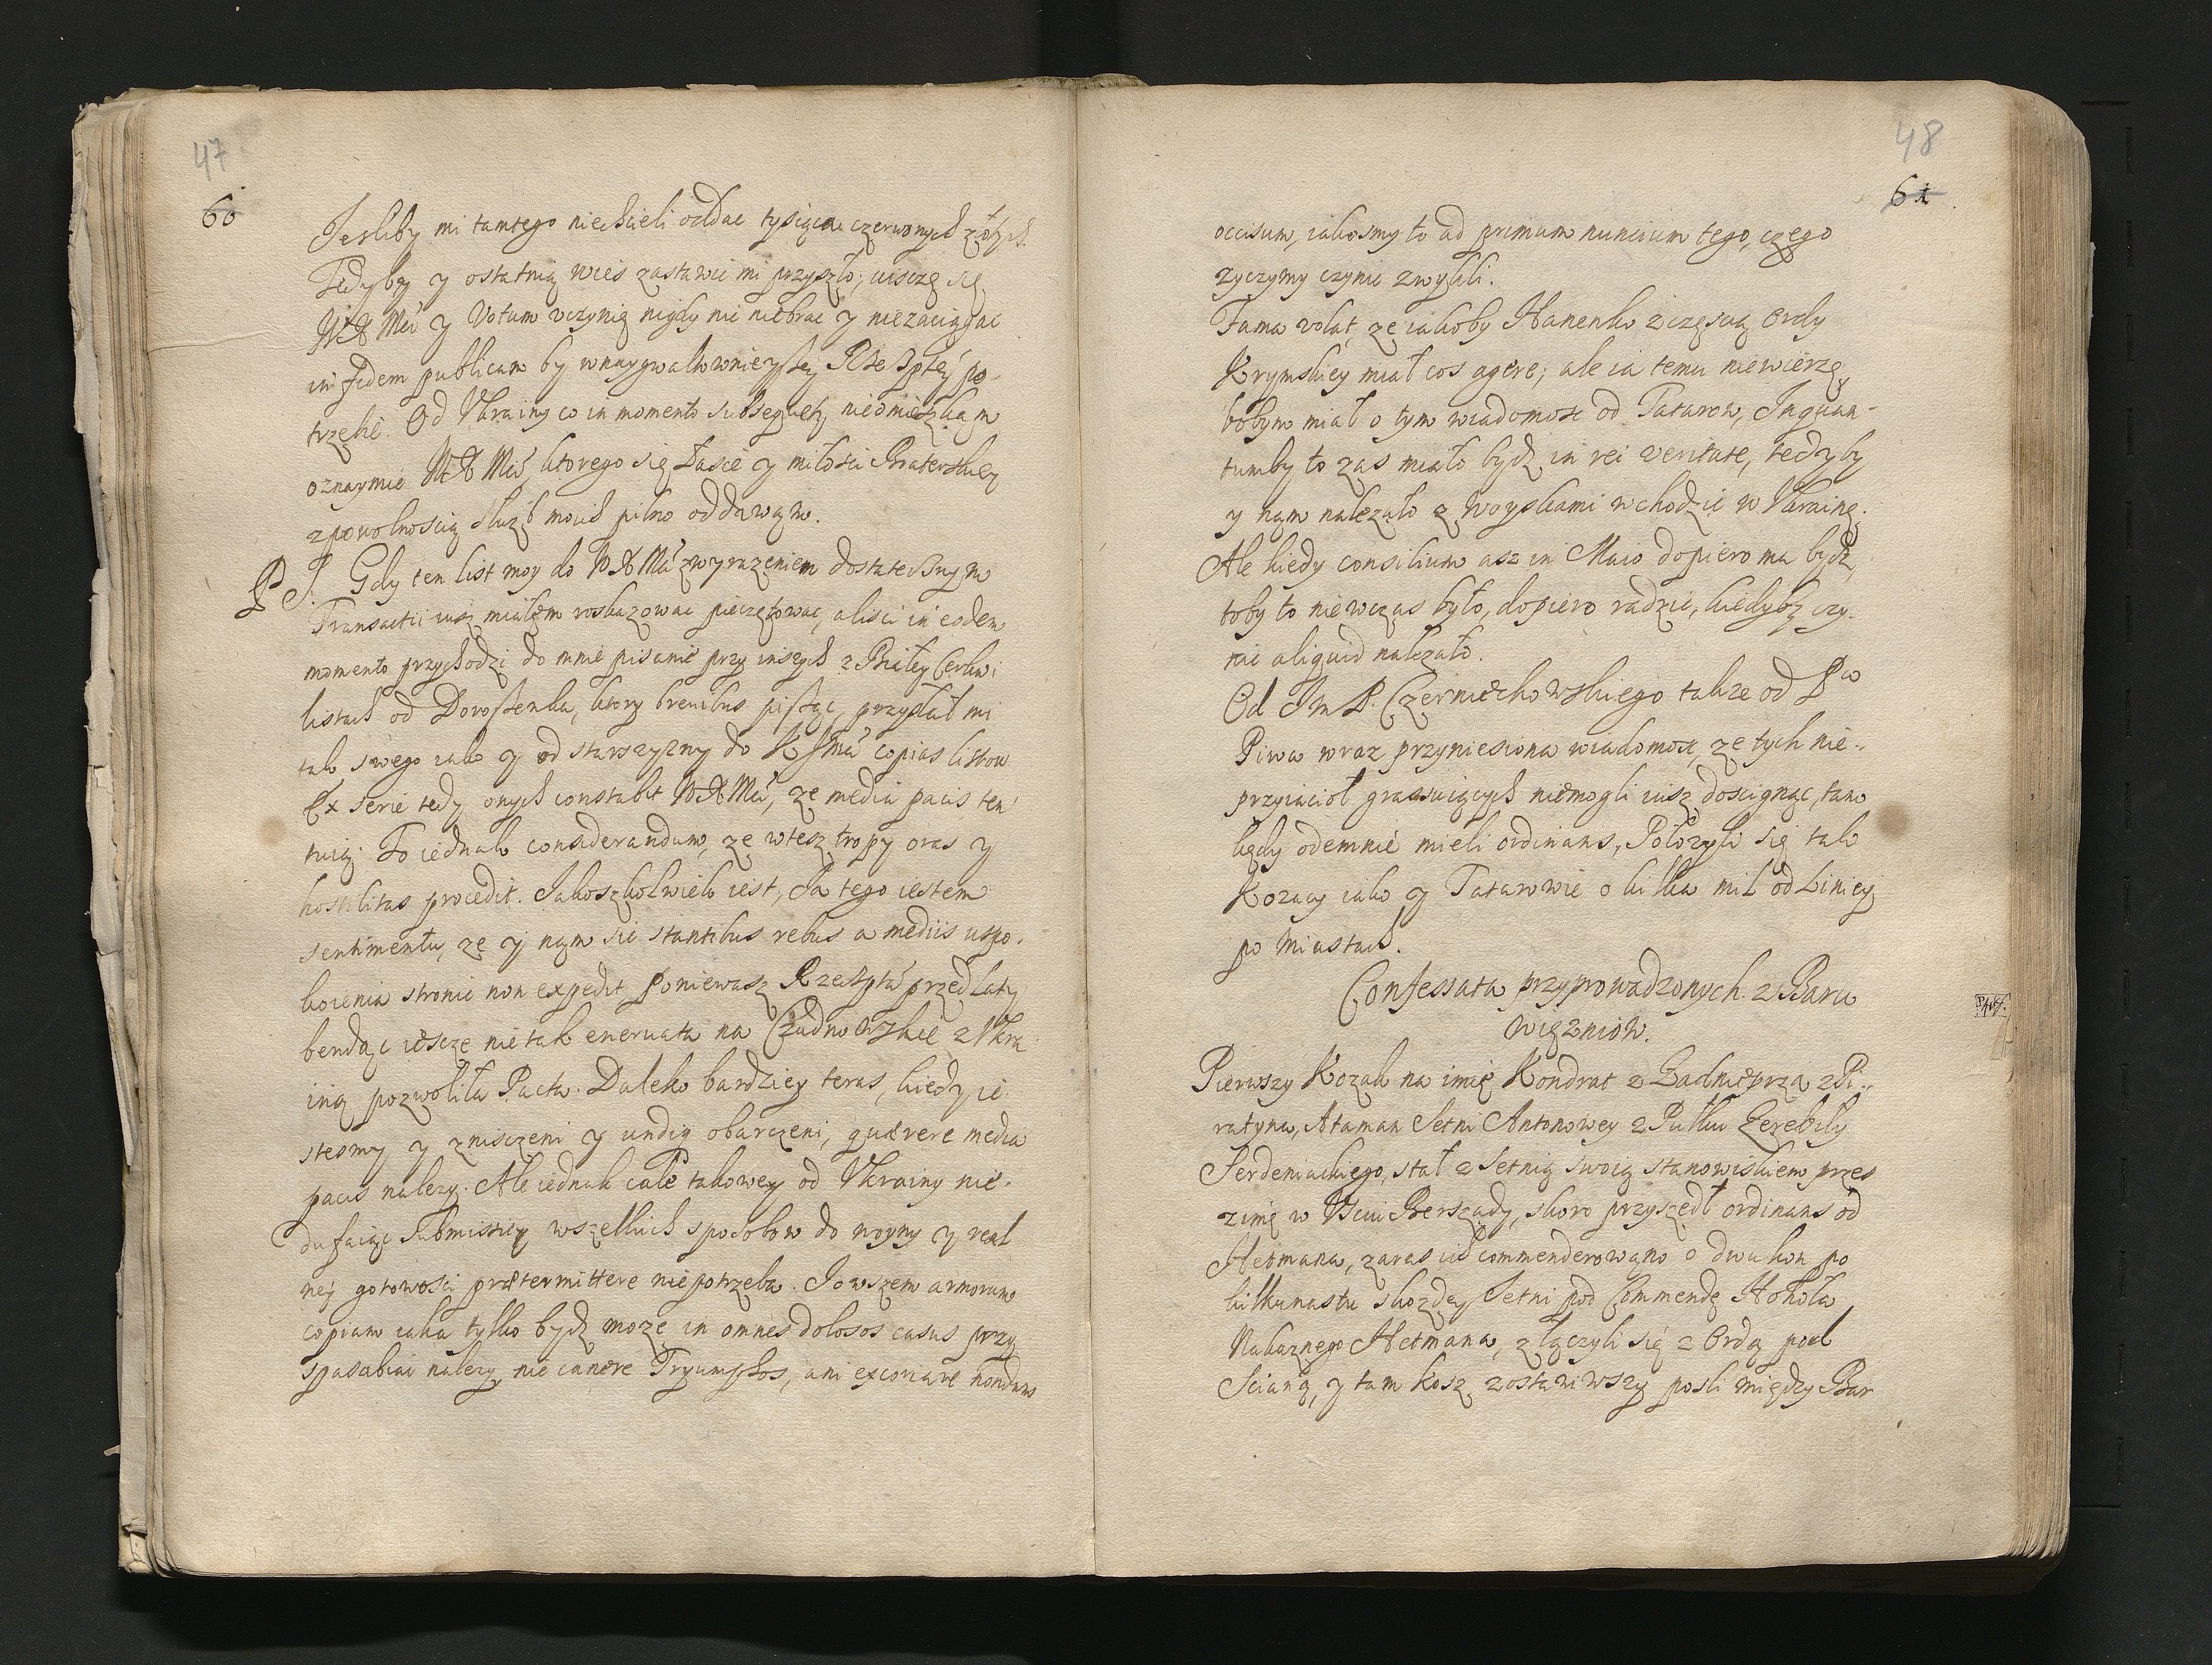 47
60
Jesliby mi tamtego niechcieli oddac tysiąca czerwonych złotych
Tedyby y ostatnią wies zastawic mi przyszło; uiszczę się
WXMci y Votum uczynię nigdy nic niebrac y niezaciągac
in fidem publicam by wnaygwałtownieyszey Rzeczptey po-
trzebie. Od Ukrainy co in momento subsequetʒ nieomieszkam
oznaymic WXMci, ktorego się łasce y miłosci Braterskiey
zpowolnoscią służb moich pilno oddawam.
P S. Gdy ten list moy do WXMci zwyrażeniem dostatecznym
Transactii iusz miałem roskazowac pieczętowac, alisci in eodem
momento przychodzi do mnie pisanie przy inszych z Białey Cerkwi
listach od Doroszenka, ktory brevibus pisząc, przysłał mi
tak swego iako y od starszyzny do KJMci copias listow
Ex serie tedy onych constabit WXMci, że media pacis ten
tuią. To iednak considerandum, że wtesz tropy oraz y
hostilitas procedit. Jakoszkolwiek iest, Ja tego iestem
sentimentu, że y nam sic stantibus rebus a mediis uspo-
koienia stronic non expedit Poniewasz Rzeczpta przed laty
bendąc iescze nie tak enervata na Czudnowskie z Ukra
iną pozwoliła Pacta. Daleko bardziey teras, kiedy ie-
stesmy y zniszczeni y undiq obarczeni, quærere media
pacis nalezy. Ale iednak cale takowey od Ukrainy nie-
dufaiąc Submissiey wszelkich sposobow do woyny y real
ney gotowosci prætermittere niepotrzeba. Iowszem armorum
copiam iaka tylko bydź może in omnes dolosos casus przy
spasabiac nalezy, nie canere Tryumphos, ani excoriare nondum
48
61
occisum, iakosmy to ad primum nuncium tego, czego
zyczymy czynic zwykli.
Fama volat, że iakoby Hanenko z częscią Ordy
Krymskiey miał cos agere; ale ia temu niewierzę,
bobym miał o tym wiadomosc od Tatarow, Inquan-
tumby to zas miało bydz in rei veritate, tedyby
y nam nalezało z Woyskami wchodzic w Ukrainę.
Ale kiedy consilium asz in Maio dopiero ma bydź,
toby to niewczas było, dopiero radzic, kiedyby czy-
nic aliquid nalezało.
Od Jm P. Czerniechowskiego takze od Pa
Piwa wraz przyniesiona wiadomosc, że tych nie-
przyiacioł grassuiących niemogli iusz doscignąc, tam
kędy odemnie mieli ordinans, Położyli się tak
Kozacy iako y Tatarowie o kilka mil od Liniey
po Miastach.
Confessata przyprowadzonych z Baru
więzniow.
Pierwszy Kozak na imię Kondrat z Zadnieprza z Pi-
ratyna, Ataman Setni Antonowey z Pułku Zerebiły
Serdeniackiego, stał z Setnią swoią stanowiskiem przes
zimę w Berszady, skoro przyszedł ordinans od
Hetmana, zaras ich commenderowano o dwu kon po
kilkunastu skozdey Setni pod Commendę Hohoła
Nakaznego Hetmana, złączyli się z Ordą pod
Scianą, y tam kosz zostawiwszy posli między Bar